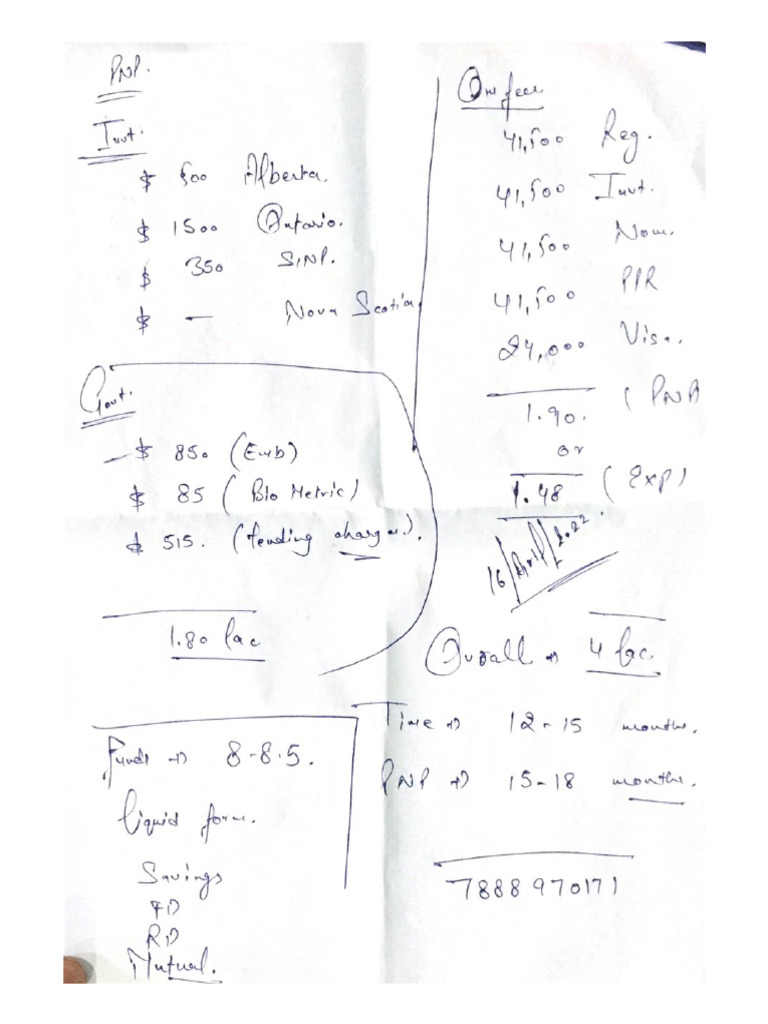 PNP.
Invt.
$ 500 Alberta.
$ 1500 Ontario.
$ 350 SINP.
$ — Nova Scotia.
Govt.
$ 850 (Emb)
$ 85 (Bio Metric)
$ 515. (Landing charges).
1.80 lac
Funds → 8-8.5.
liquid form.
Savings
FD
RD
Mutual.
Our fees
41,500 Reg.
41,500 Invt.
41,500 Nom.
41,500 PIR
24,000 Visa.
1.90. (PNP)
or
1.48 (Exp)
16/April/2022
Overall → 4 lac
Time → 12-15 months.
PNP → 15-18 months.
7888970171